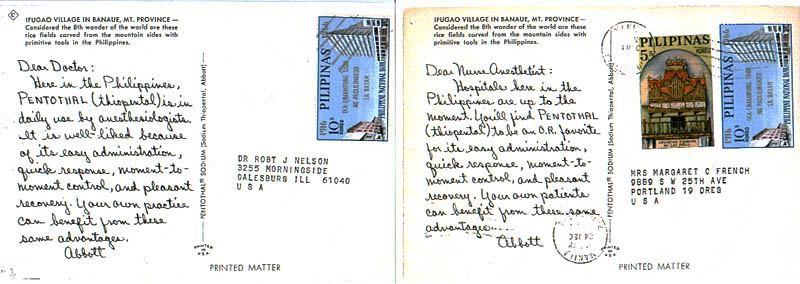 IFUGAO VILLAGE IN BANAUE, MT. PROVINCE —
Considered the 8th wonder of the world are these
rice fields carved from the mountain sides with
primitive tools in the Philippines.
Dear Doctor:
Here in the Philippines,
PENTOTHAL (thiopental) is in
daily use by anesthesiologists.
It is well-liked because
of its easy administration,
quick response, moment-to-
moment control, and pleasant
recovery. Your own practice
can benefit from these
same advantages.
Abbott
PENTOTHAL® SODIUM (Sodium Thiopental, Abbott)
PILIPINAS
1916 1966
10s
KOREO
PHILIPPINE NATIONAL BANK
IKA-LIMAMPUNG TAON
NG PAGLILINGKOD
SA BAYAN
DR ROBT J NELSON
3255 MORNINGSIDE
GALESBURG ILL 61040
U S A
PRINTED IN
U.S.A.
PRINTED MATTER
IFUGAO VILLAGE IN BANAUE, MT. PROVINCE —
Considered the 8th wonder of the world are these
rice fields carved from the mountain sides with
primitive tools in the Philippines.
Dear Nurse Anesthetist:
Hospitals here in the
Philippines are up to the
moment. You'll find PENTOTHAL
(thiopental) to be an O.R. favorite
for its easy administration,
quick response, moment-to-
moment control, and pleasant
recovery. Your own patients
can benefit from these same
advantages.
Abbott
PENTOTHAL® SODIUM (Sodium Thiopental, Abbott)
PILIPINAS
5s
KOREO
PILIPINAS
1916
10s
KOREO
PHILIPPINE NATIONAL BANK
IKA-LIMAMPUNG TAON
NG PAGLILINGKOD
SA BAYAN
MRS MARGARET C FRENCH
9889 S W 25TH AVE
PORTLAND 19 OREG
U S A
MANILA
DEC
PRINTED IN
U.S.A.
PRINTED MATTER